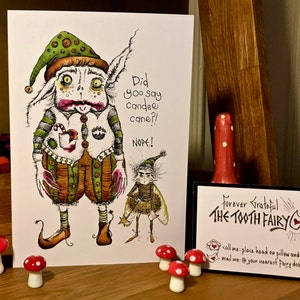 Did
yoo say
candee
cane?!
NOPE!
Forever Grateful
THE TOOTH FAIRY
call me: place hand on pillow and
email me: @ your nearest fairy door